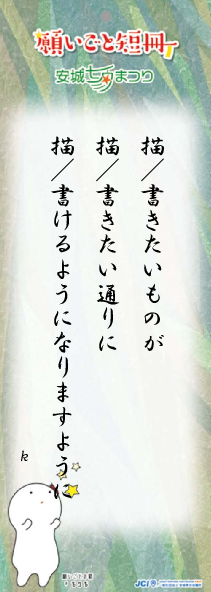 願いごと短冊
安城七夕まつり
描／書きたいものが
描／書きたい通りに
描／書けるようになりますように
k
JCI